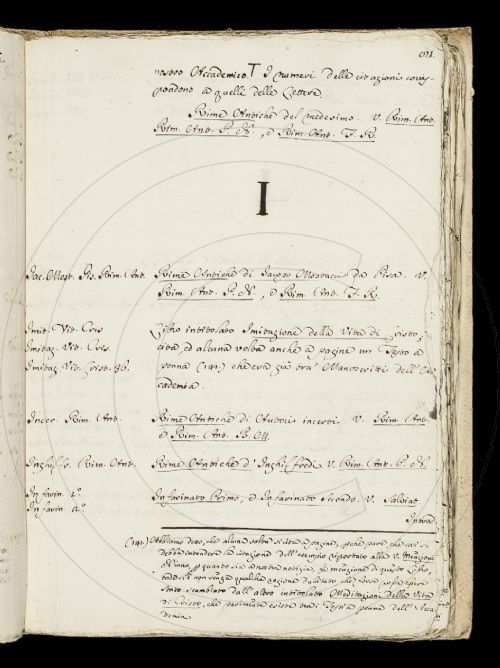 nostro Accademico. I numeri delle citazioni corris-
pondono a quelle delle Lettere
Rime Antiche del medesimo. V. Rim. Ant.
Rim. Ant. P. N., e Rim. Ant. F. R.
I
Jac. Most. Pis. Rim. Ant.
Rime Antiche di Jacopo Mostacci da Pisa. V.
Rim. Ant. P. N., e Rim. Ant. F. R.
Imit. Vit. Cres
Imitaz. Vit. Cres.
Imitaz. Vit. Crist. 36.
Libro intitolato Imitazione della Vita di Cristo,
cita, ed alcuna volta anche a pagine un Testo a
penna (141.) che era già fra' Manoscritti dell' Ac
cademia.
Incer. Rim. Ant.
Rime Antiche di Autori incerti V. Rim. Ant.
e Rim. Ant. B. M.
Inghilfr. Rim. Ant.
Rime Antiche d' Inghilfredi V. Rim. Ant. P. N.
Infarin. 1.º
Infarin. 2.º
Infarinato Primo, e Infarinato Secondo. V. Salviat
(141.) Abbiamo detto, che alcuna volta si cita a pagine, perchè pare che così si
debba intendere la citazione dell' esempio riportato alla V. Menzione
di questo Libro,
stato scambiato dall' altro intitolato Meditazioni della Vita
di Cristo, che parimente esiste tra i Testi a penna dell' Acca
demia